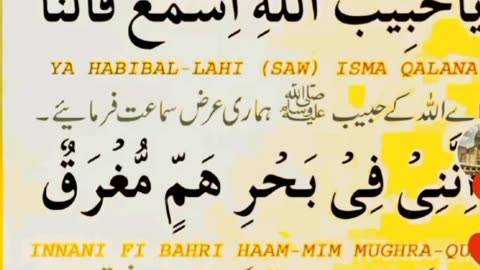 يَاحَبِيبَ اللهِ اِسْمَعْ قَالَنَا
YA HABIBAL-LAHI (SAW) ISMA QALANA
اے اللہ کے حبیب ﷺ ہماری عرض سماعت فرمائیے۔
اِنَّنِىْ فِىْ بَحْرِ هَمٍّ مُّغْرَقٌ
INNANI FI BAHRI HAAM-MIM MUGHRA-QU